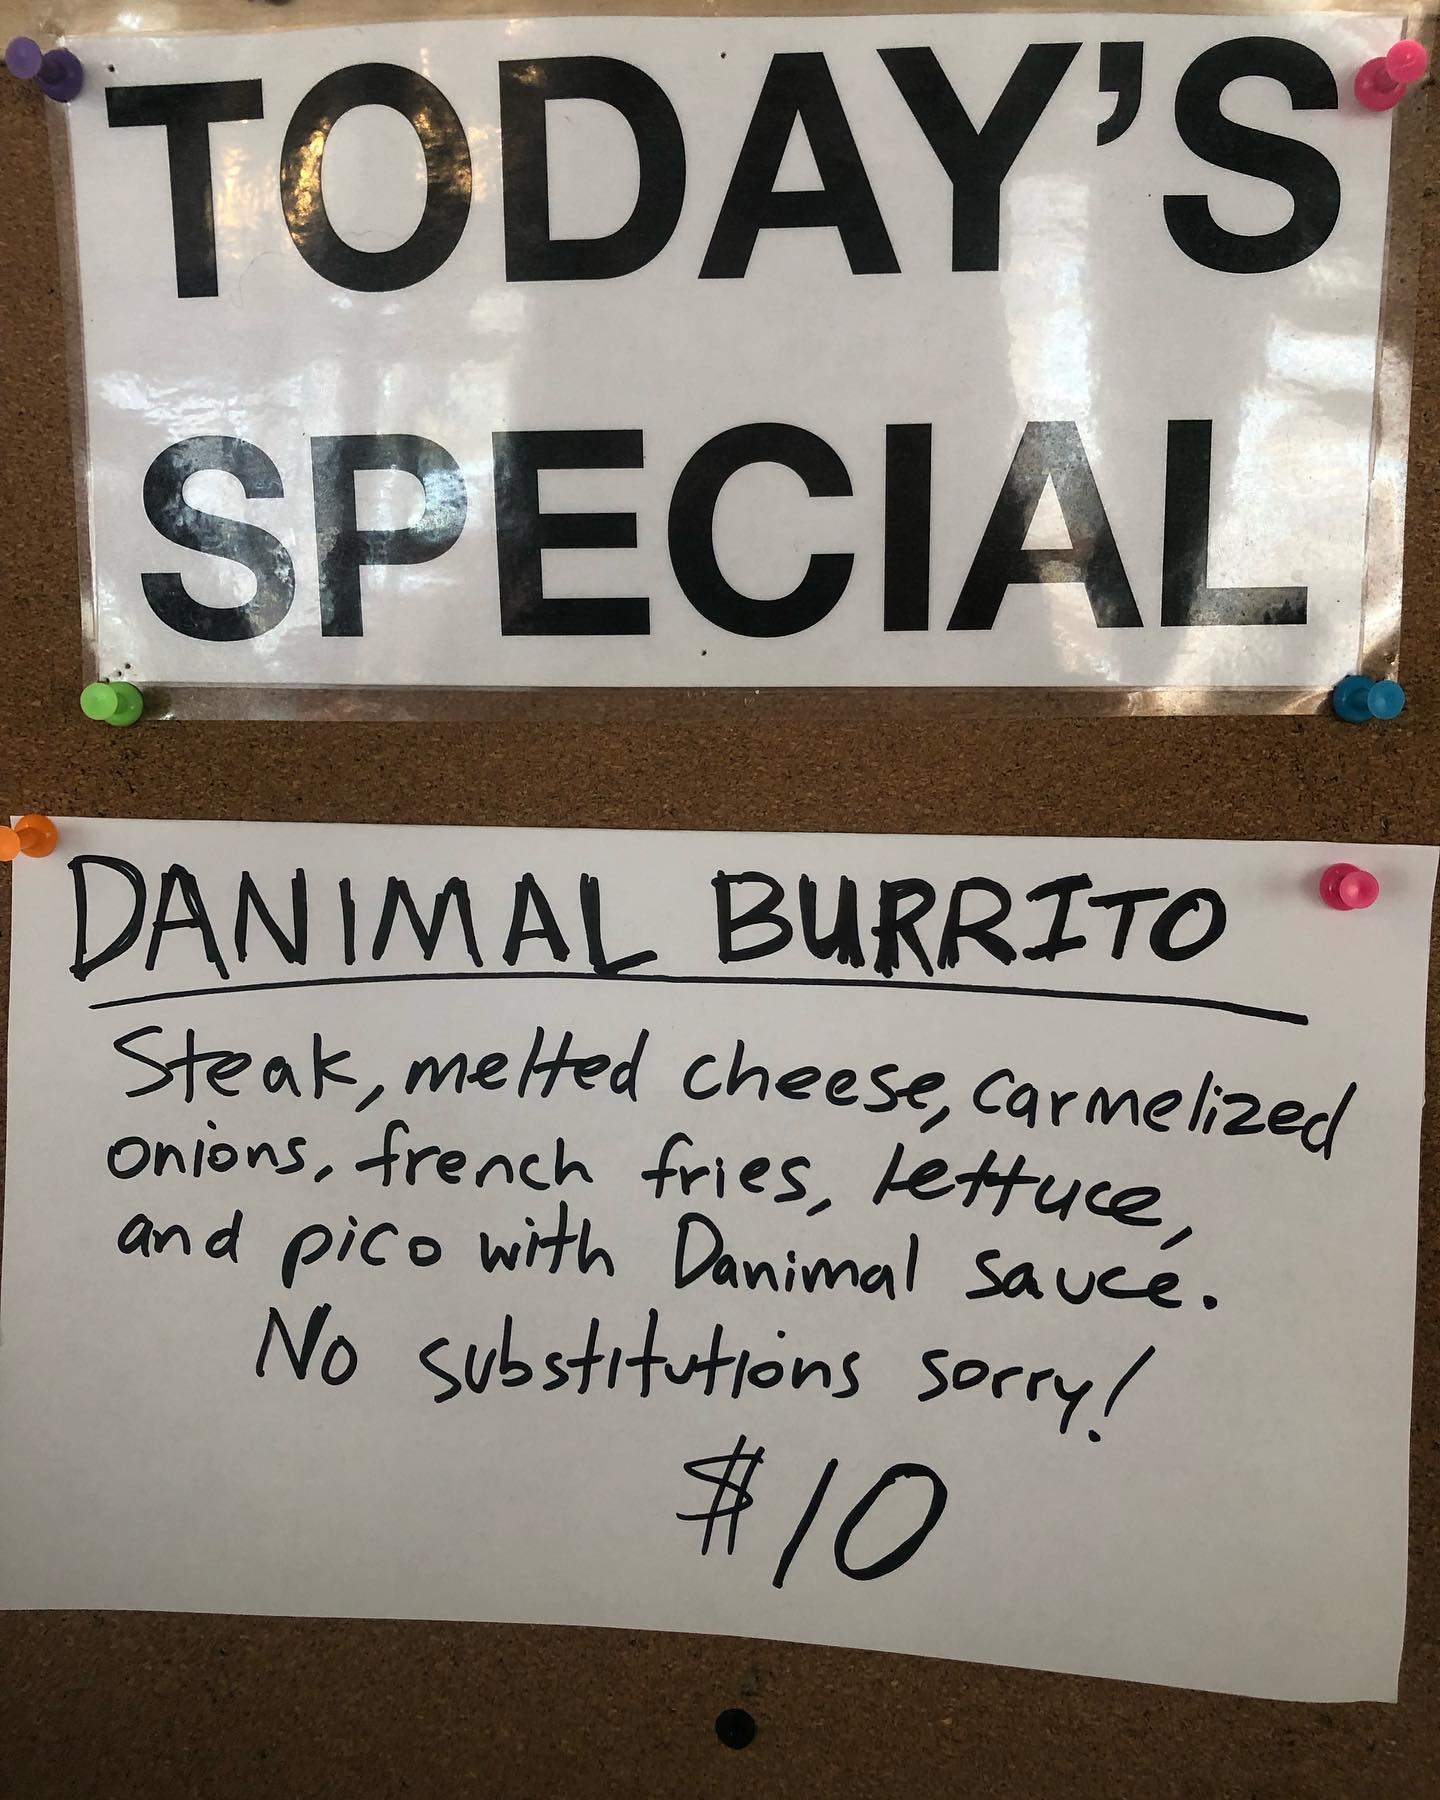 TODAY'S
SPECIAL
DANIMAL BURRITO
Steak, melted cheese, carmelized
onions, french fries, lettuce,
and pico with Danimal sauce.
No substitutions sorry!
$10